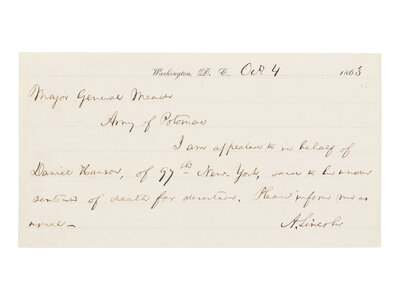 Washington, D. C. Oct. 4 1863
Major General Meade
Army of Potomac
I am appealed to in behalf of
Daniel Hanson, of 97th New-York, said to be under
sentence of death for desertion. Please inform me as
such—
A. Lincoln